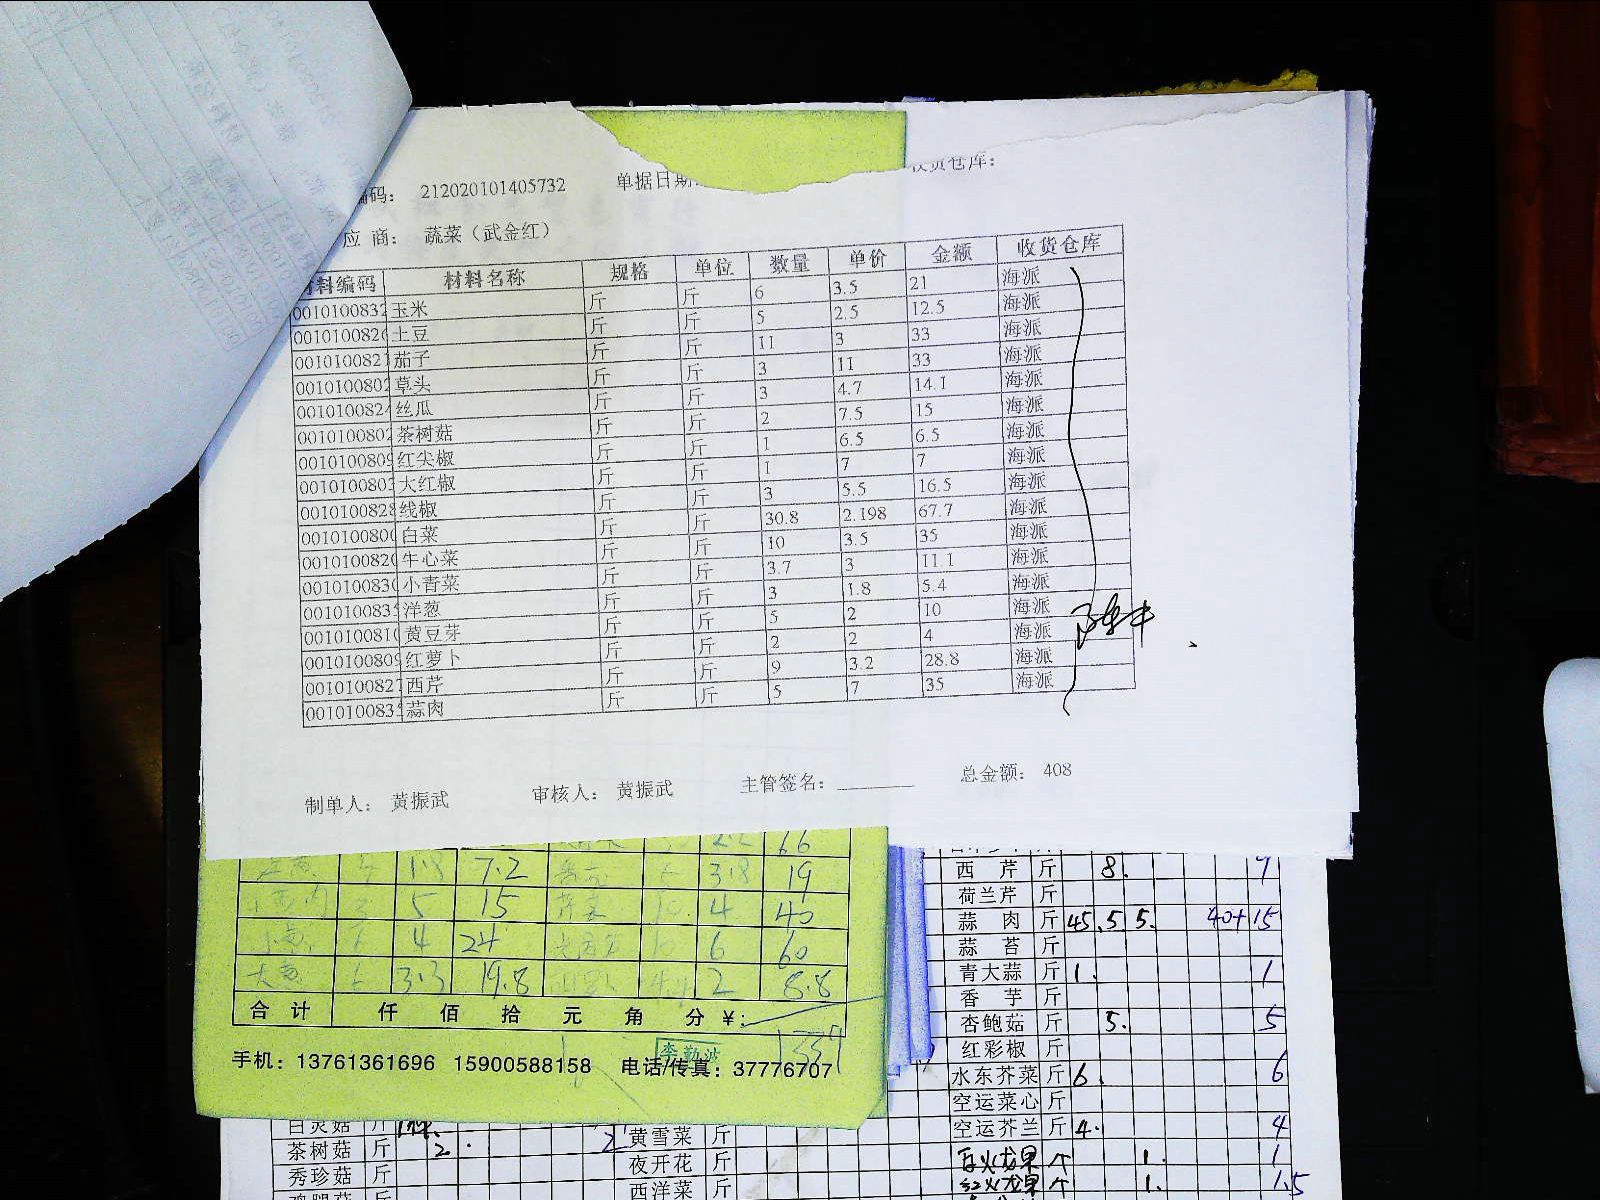 编码： 212020101405732 单据日期:
收货仓库：
应 商： 蔬菜（武金红）
材料编码 材料名称 规格 单位 数量 单价 金额 收货仓库
0010100832 玉米 斤 斤 6 3.5 21 海派
001010082 土豆 斤 斤 5 2.5 12.5 海派
001010082 茄子 斤 斤 11 3 33 海派
001010080 草头 斤 斤 3 11 33 海派
001010082 丝瓜 斤 斤 3 4.7 14.1 海派
001010080 茶树菇 斤 斤 2 7.5 15 海派
001010080 红尖椒 斤 斤 1 6.5 6.5 海派
001010080 大红椒 斤 斤 1 7 7 海派
001010082 线椒 斤 斤 3 5.5 16.5 海派
001010080 白菜 斤 斤 30.8 2.198 67.7 海派
001010082 牛心菜 斤 斤 10 3.5 35 海派
001010083 小青菜 斤 斤 3.7 3 11.1 海派
001010083 洋葱 斤 斤 3 1.8 5.4 海派
001010081 黄豆芽 斤 斤 5 2 10 海派
001010080 红萝卜 斤 斤 2 2 4 海派
001010082 西芹 斤 斤 9 3.2 28.8 海派
001010083 蒜肉 斤 斤 5 7 35 海派
制单人： 黄振武 审核人： 黄振武 主管签名：________ 总金额： 408
66
1.8 7.2 3.8 19
5 15 4 40
4 24 6 60
大葱 3.3 19.8 2 8.8
合 计 仟 佰 拾 元 角 分 ¥：
李勤波
手机：13761361696 15900588158 电话/传真：37776707
西 芹 斤 8.
荷兰芹 斤
蒜 肉 斤 45. 5. 5. 40+15
蒜 苔 斤
青大蒜 斤 1. 1
香 芋 斤
杏鲍菇 斤 5. 5
红彩椒 斤
水东芥菜 斤 6. 6
空运菜心 斤
空运芥兰 斤 4. 4
白火龙果 个 1. 1
红火龙果 个 1. 1.5
白灵菇 斤
茶树菇 斤 2. 2
秀珍菇 斤
黄雪菜 斤
夜开花 斤
西洋菜 斤